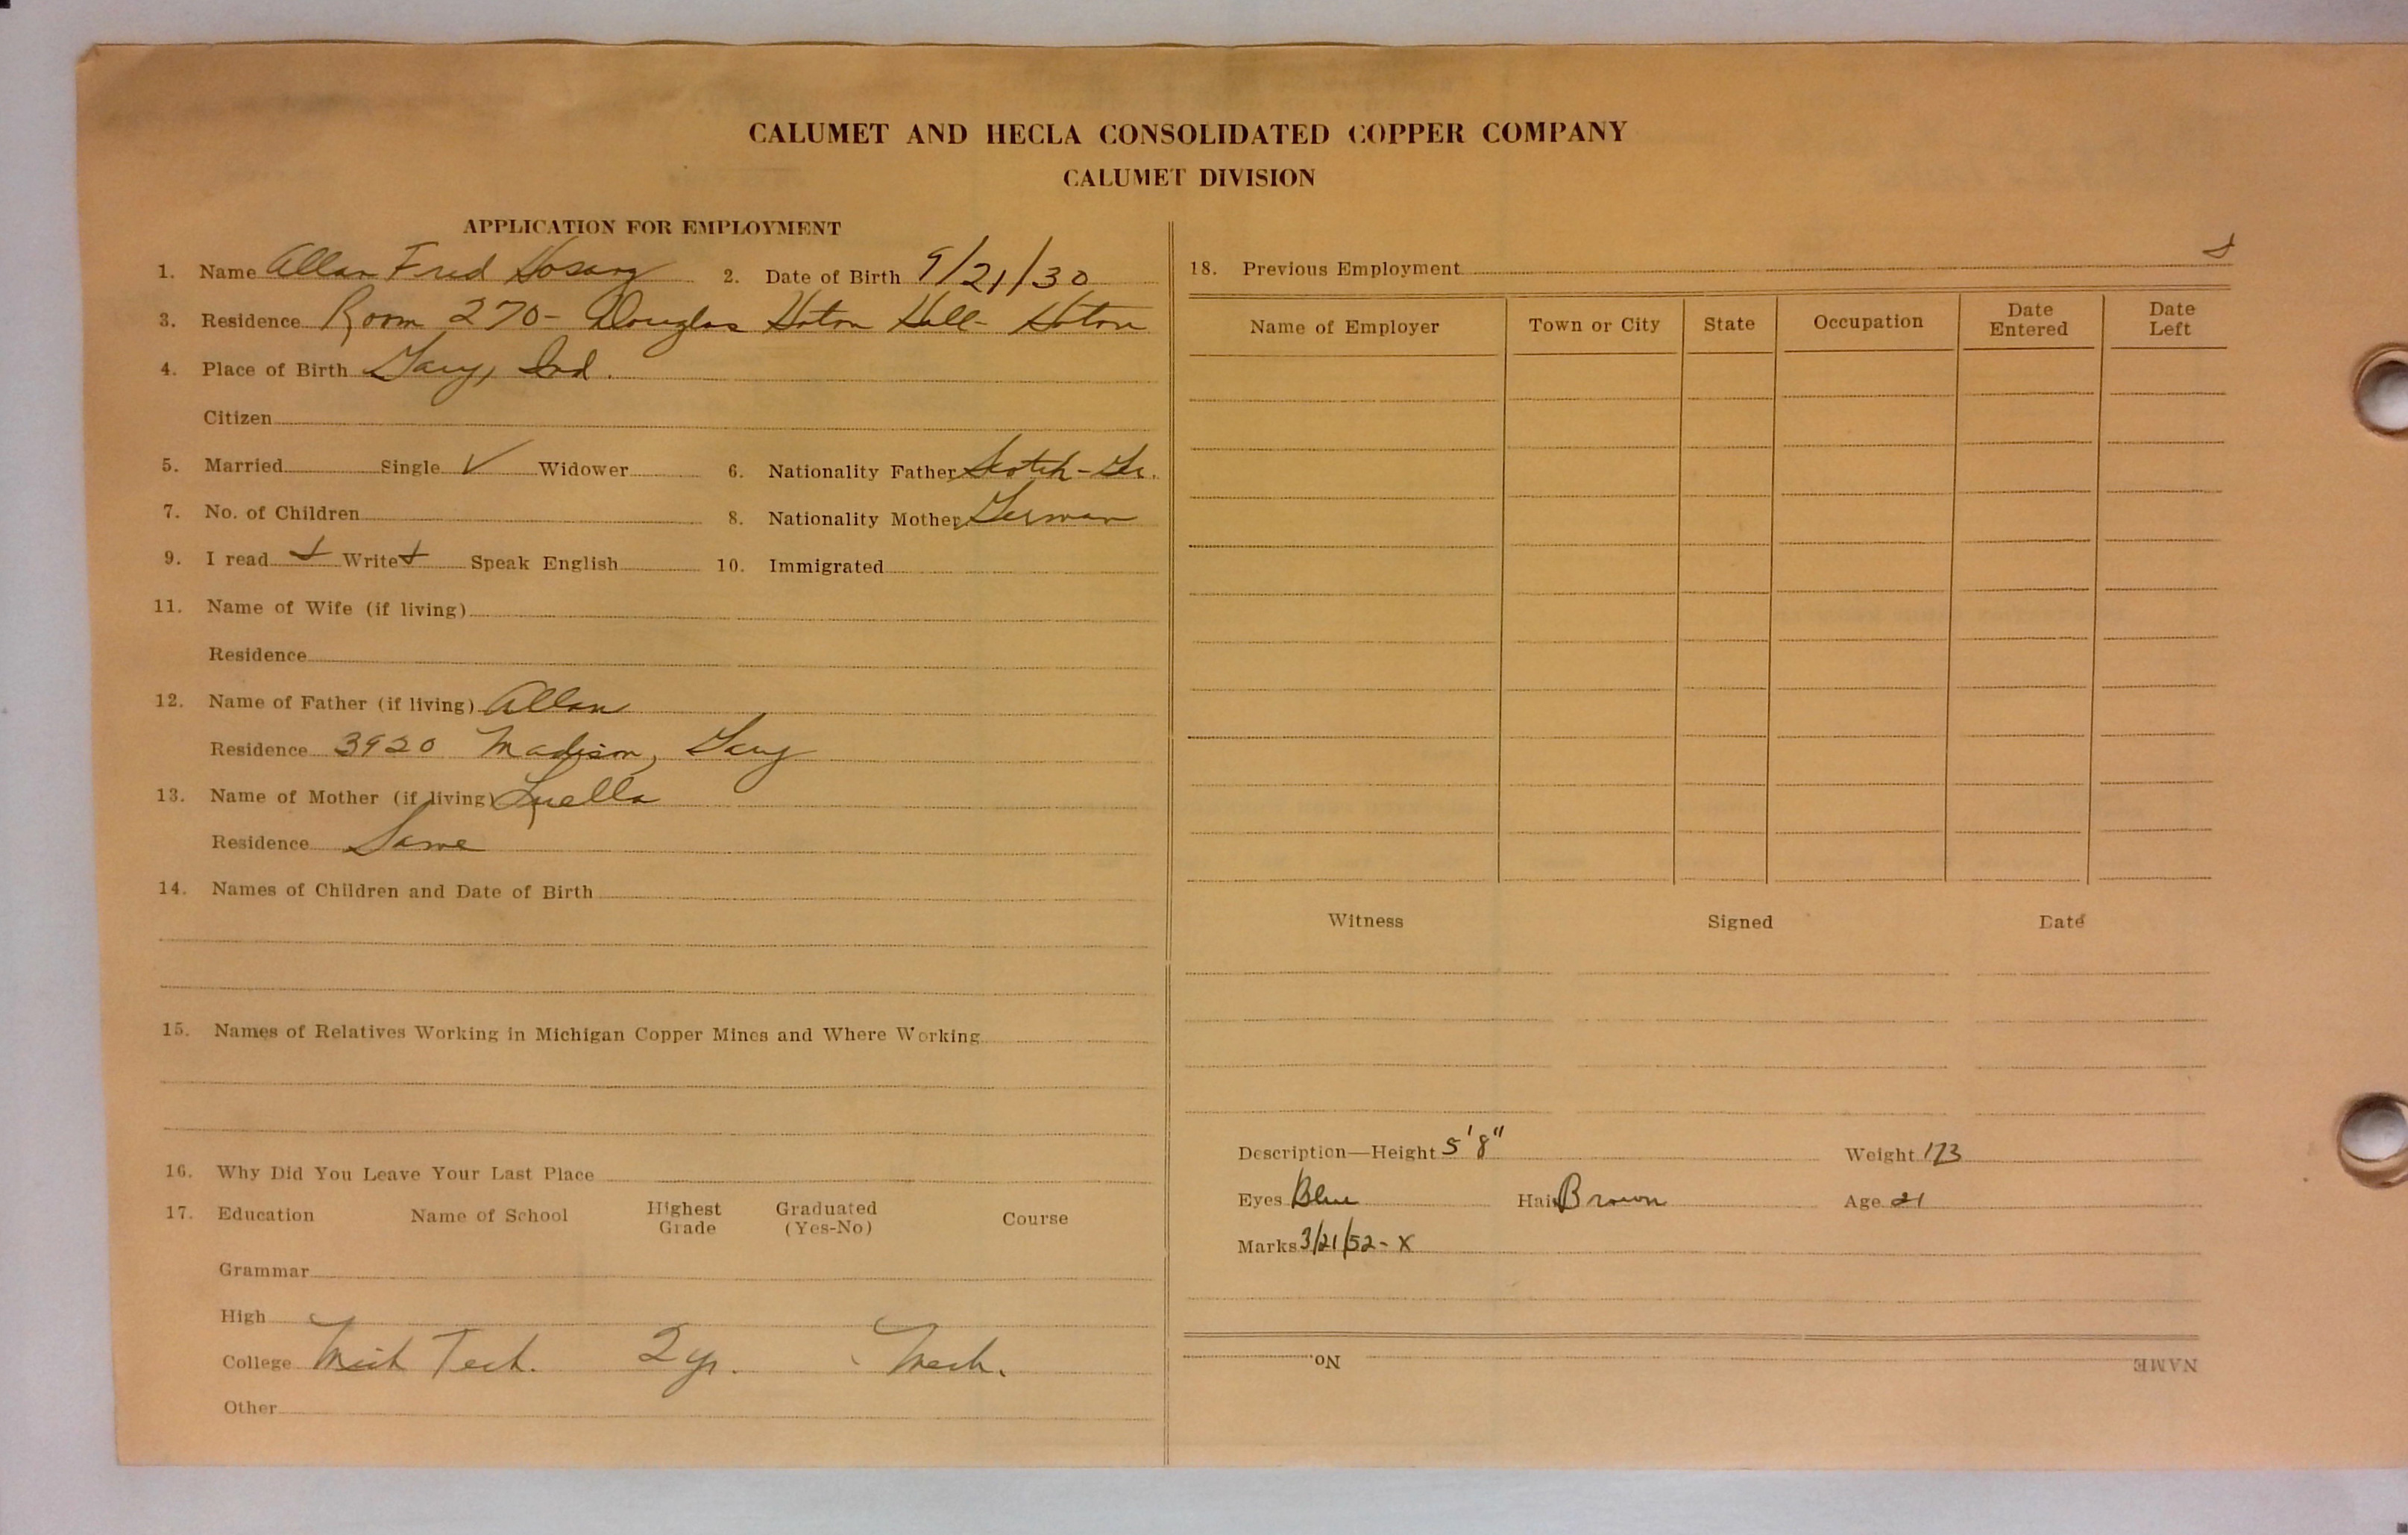 CALUMET AND HECLA CONSOLIDATED COPPER COMPANY
CALUMET DIVISION
APPLICATION FOR EMPLOYMENT
1. Name Allan Fred Hosang 2. Date of Birth 9/21/30
3. Residence Room 270- Douglas Hoton Hall- Hoton
4. Place of Birth Gary, Ind.
Citizen
5. Married Single ✓ Widower 6. Nationality Father Scotch-Ger.
7. No. of Children 8. Nationality Mother German
9. I read Write Speak English 10. Immigrated
11. Name of Wife (if living)
Residence
12. Name of Father (if living) Allan
Residence 3920 Madison, Gary
13. Name of Mother (if living) Luella
Residence Same
14. Names of Children and Date of Birth
15. Names of Relatives Working in Michigan Copper Mines and Where Working
16. Why Did You Leave Your Last Place
17. Education Name of School Highest Grade Graduated (Yes-No) Course
Grammar
High
College Mich Tech. 2 yr. Mech.
Other
18. Previous Employment
Name of Employer Town or City State Occupation Date Entered Date Left
Witness Signed Date
Description—Height 5'8" Weight 173
Eyes Blue Hair Brown Age 21
Marks 3/21/52- X
NAME No.